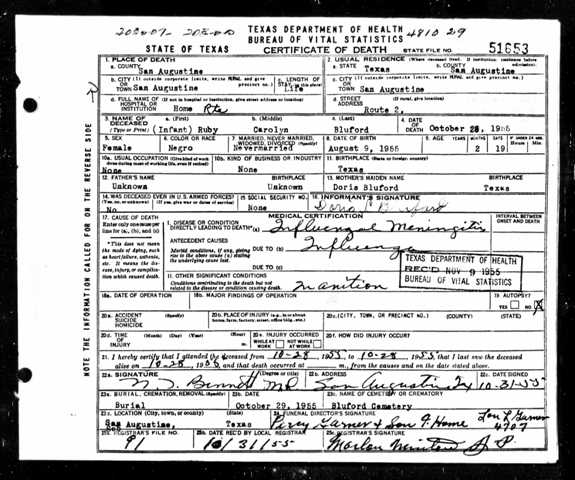 TEXAS DEPARTMENT OF HEALTH
BUREAU OF VITAL STATISTICS
4810 29
STATE OF TEXAS
CERTIFICATE OF DEATH
STATE FILE NO.
51653
1. PLACE OF DEATH
a. COUNTY
San Augustine
2. USUAL RESIDENCE (Where deceased lived. If institution: residence before admission)
a. STATE
Texas
b. COUNTY
San Augustine
b. CITY (If outside corporate limits, write RURAL and give precinct no.)
OR
TOWN San Augustine
c. LENGTH OF STAY
Life
c. CITY (If outside corporate limits, write RURAL and give precinct no.)
OR
TOWN San Augustine
d. FULL NAME OF (If not in hospital or institution, give street address or location)
HOSPITAL OR
INSTITUTION
Home
d. STREET ADDRESS (If rural, give location)
Route 2,
3. NAME OF DECEASED
(Type or Print)
a. (First)
(Infant) Ruby
b. (Middle)
Carolyn
c. (Last)
Bluford
4. DATE OF DEATH
October 28, 1955
5. SEX
Female
6. COLOR OR RACE
Negro
7. MARRIED, NEVER MARRIED, WIDOWED, DIVORCED (Specify)
Nevermarried
8. DATE OF BIRTH
August 9, 1955
9. AGE
YEARS
MONTHS
2
DAYS
19
10a. USUAL OCCUPATION
None
10b. KIND OF BUSINESS OR INDUSTRY
None
11. BIRTHPLACE (State or foreign country)
Texas
12. FATHER'S NAME
Unknown
BIRTHPLACE
Unknown
13. MOTHER'S MAIDEN NAME
Doris Bluford
BIRTHPLACE
Texas
14. WAS DECEASED EVER IN U.S. ARMED FORCES?
(Yes, no, or unknown) (If yes, give war or dates of service)
No
15. SOCIAL SECURITY NO.
None
16. INFORMANT'S SIGNATURE
17. CAUSE OF DEATH
Enter only one cause per line for (a), (b), and (c)
*This does not mean the mode of dying, such as heart failure, asthenia, etc. It means the disease, injury, or complication which caused death.
MEDICAL CERTIFICATION
I. DISEASE OR CONDITION
DIRECTLY LEADING TO DEATH* (a)
Influenzal Meningitis
INTERVAL BETWEEN ONSET AND DEATH
ANTECEDENT CAUSES
Morbid conditions, if any, giving rise to the above cause (a) stating the underlying cause last.
DUE TO (b)
Influenza
DUE TO (c)
TEXAS DEPARTMENT OF HEALTH
REC'D NOV 9 1955
BUREAU OF VITAL STATISTICS
II. OTHER SIGNIFICANT CONDITIONS
Conditions contributing to the death but not related to the disease or condition causing death.
Inanition
18a. DATE OF OPERATION
18b. MAJOR FINDINGS OF OPERATION
19. AUTOPSY?
YES NO X
20a. ACCIDENT
SUICIDE
HOMICIDE
(Specify)
20b. PLACE OF INJURY (e.g., in or about home, farm, factory, street, office bldg., etc.)
20c. (CITY, TOWN, OR PRECINCT NO.) (COUNTY) (STATE)
20d. TIME OF INJURY
(Month) (Day) (Year) (Hour)
20e. INJURY OCCURRED
WHILE AT WORK NOT WHILE AT WORK
20f. HOW DID INJURY OCCUR?
21. I hereby certify that I attended the deceased from 10-28, 1955, to 10-28, 1955, that I last saw the deceased
alive on 10-28, 1955, and that death occurred at m., from the causes and on the date stated above.
22a. SIGNATURE (Degree or title)
Bennett MD
22b. ADDRESS
San Augustine, Tx
22c. DATE SIGNED
10-31-55
23a. BURIAL, CREMATION, REMOVAL (Specify)
Burial
23b. DATE
October 29, 1955
23c. NAME OF CEMETERY OR CREMATORY
Bluford Cemetery
23d. LOCATION (City, town, or county) (State)
San Augustine, Texas
24. FUNERAL DIRECTOR'S SIGNATURE
Percy Garner & Son F. Home
4707
25a. REGISTRAR'S FILE NO.
91
25b. DATE REC'D BY LOCAL REGISTRAR
10/31/55
25c. REGISTRAR'S SIGNATURE
NOTE THE INFORMATION CALLED FOR ON THE REVERSE SIDE